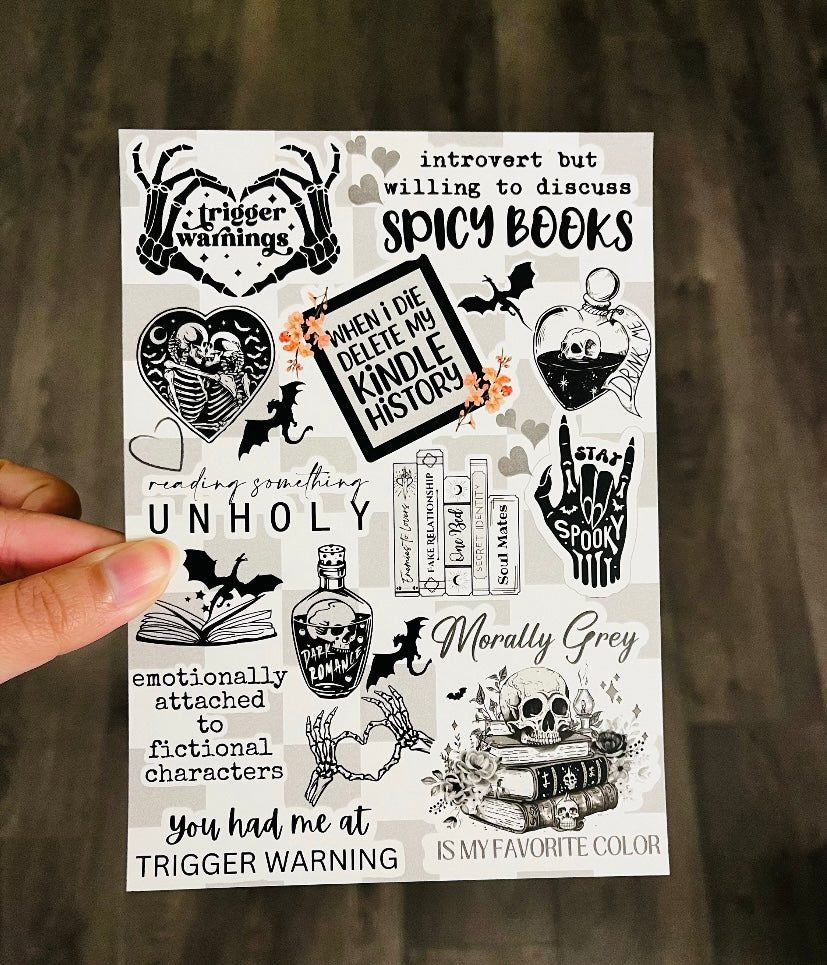 trigger
warnings
introvert but
willing to discuss
SPICY BOOKS
WHEN i DiE
DELETE MY
KiNDLE
HiSTORY
DRINK ME
reading something
UNHOLY
Enemies to Lovers
FAKE RELATIONSHIP
One Bed
SECRET IDENTITY
Soul Mates
STAY
SPOOKY
DARK
ROMANCE
Morally Grey
IS MY FAVORITE COLOR
emotionally
attached
to
fictional
characters
you had me at
TRIGGER WARNING